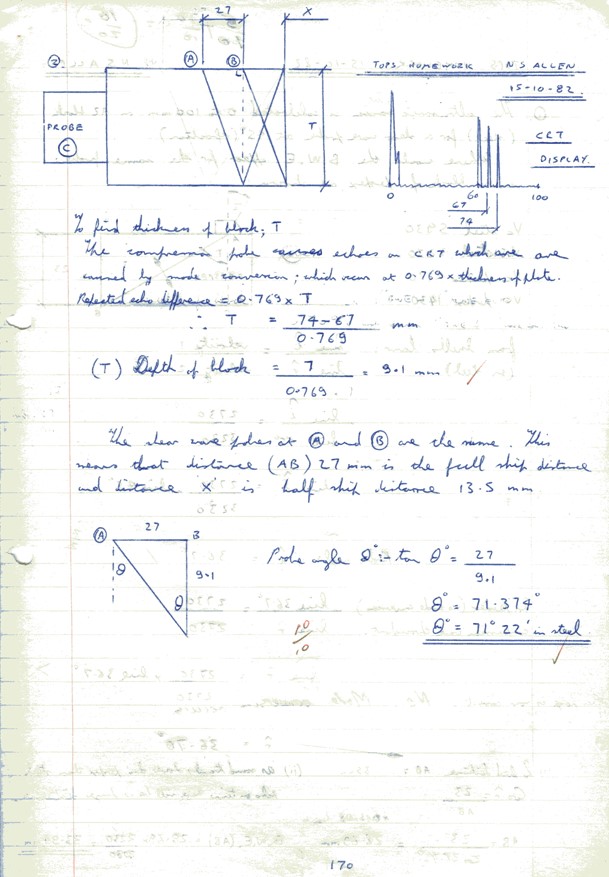 27
X
②
Ⓐ
Ⓑ
TOPS HOMEWORK N S ALLEN
15-10-82.
PROBE
Ⓒ
T
CRT
DISPLAY.
0
60
100
67
74
To find thickness of block; T
The compression probe echoes on CRT which are
caused by mode conversion; which occur at 0.769 x thickness of plate.
Repeated echo difference = 0.769 x T
∴ T = 74-67 mm
0.769
(T) Depth of block = 7 = 9.1 mm
0.769
The shear wave pulses at Ⓐ and Ⓑ are the same. This
means that distance (AB) 27 mm is the full skip distance
and distance X is half skip distance 13.5 mm
27
Ⓐ
B
9.1
θ
θ
Probe angle θ°:- tan θ° = 27
9.1
θ° = 71.374°
θ° = 71° 22' in steel
10
10
170